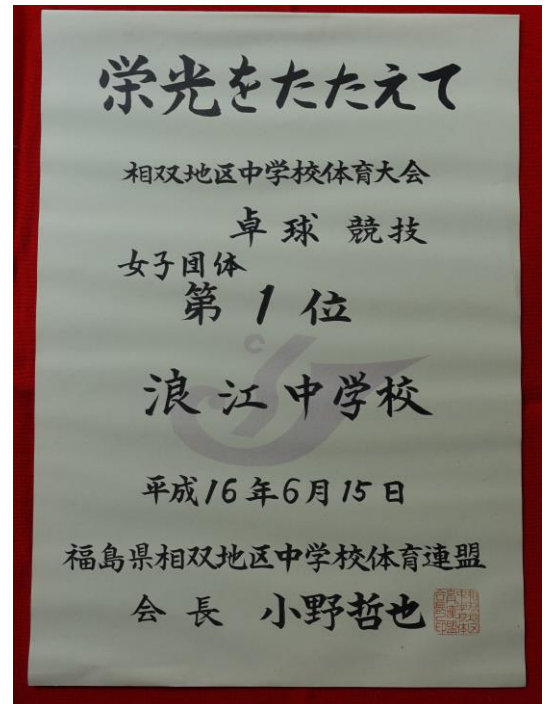 栄光をたたえて
相双地区中学校体育大会
卓球競技
女子団体
第1位
浪江中学校
平成16年6月15日
福島県相双地区中学校体育連盟
会長 小野哲也